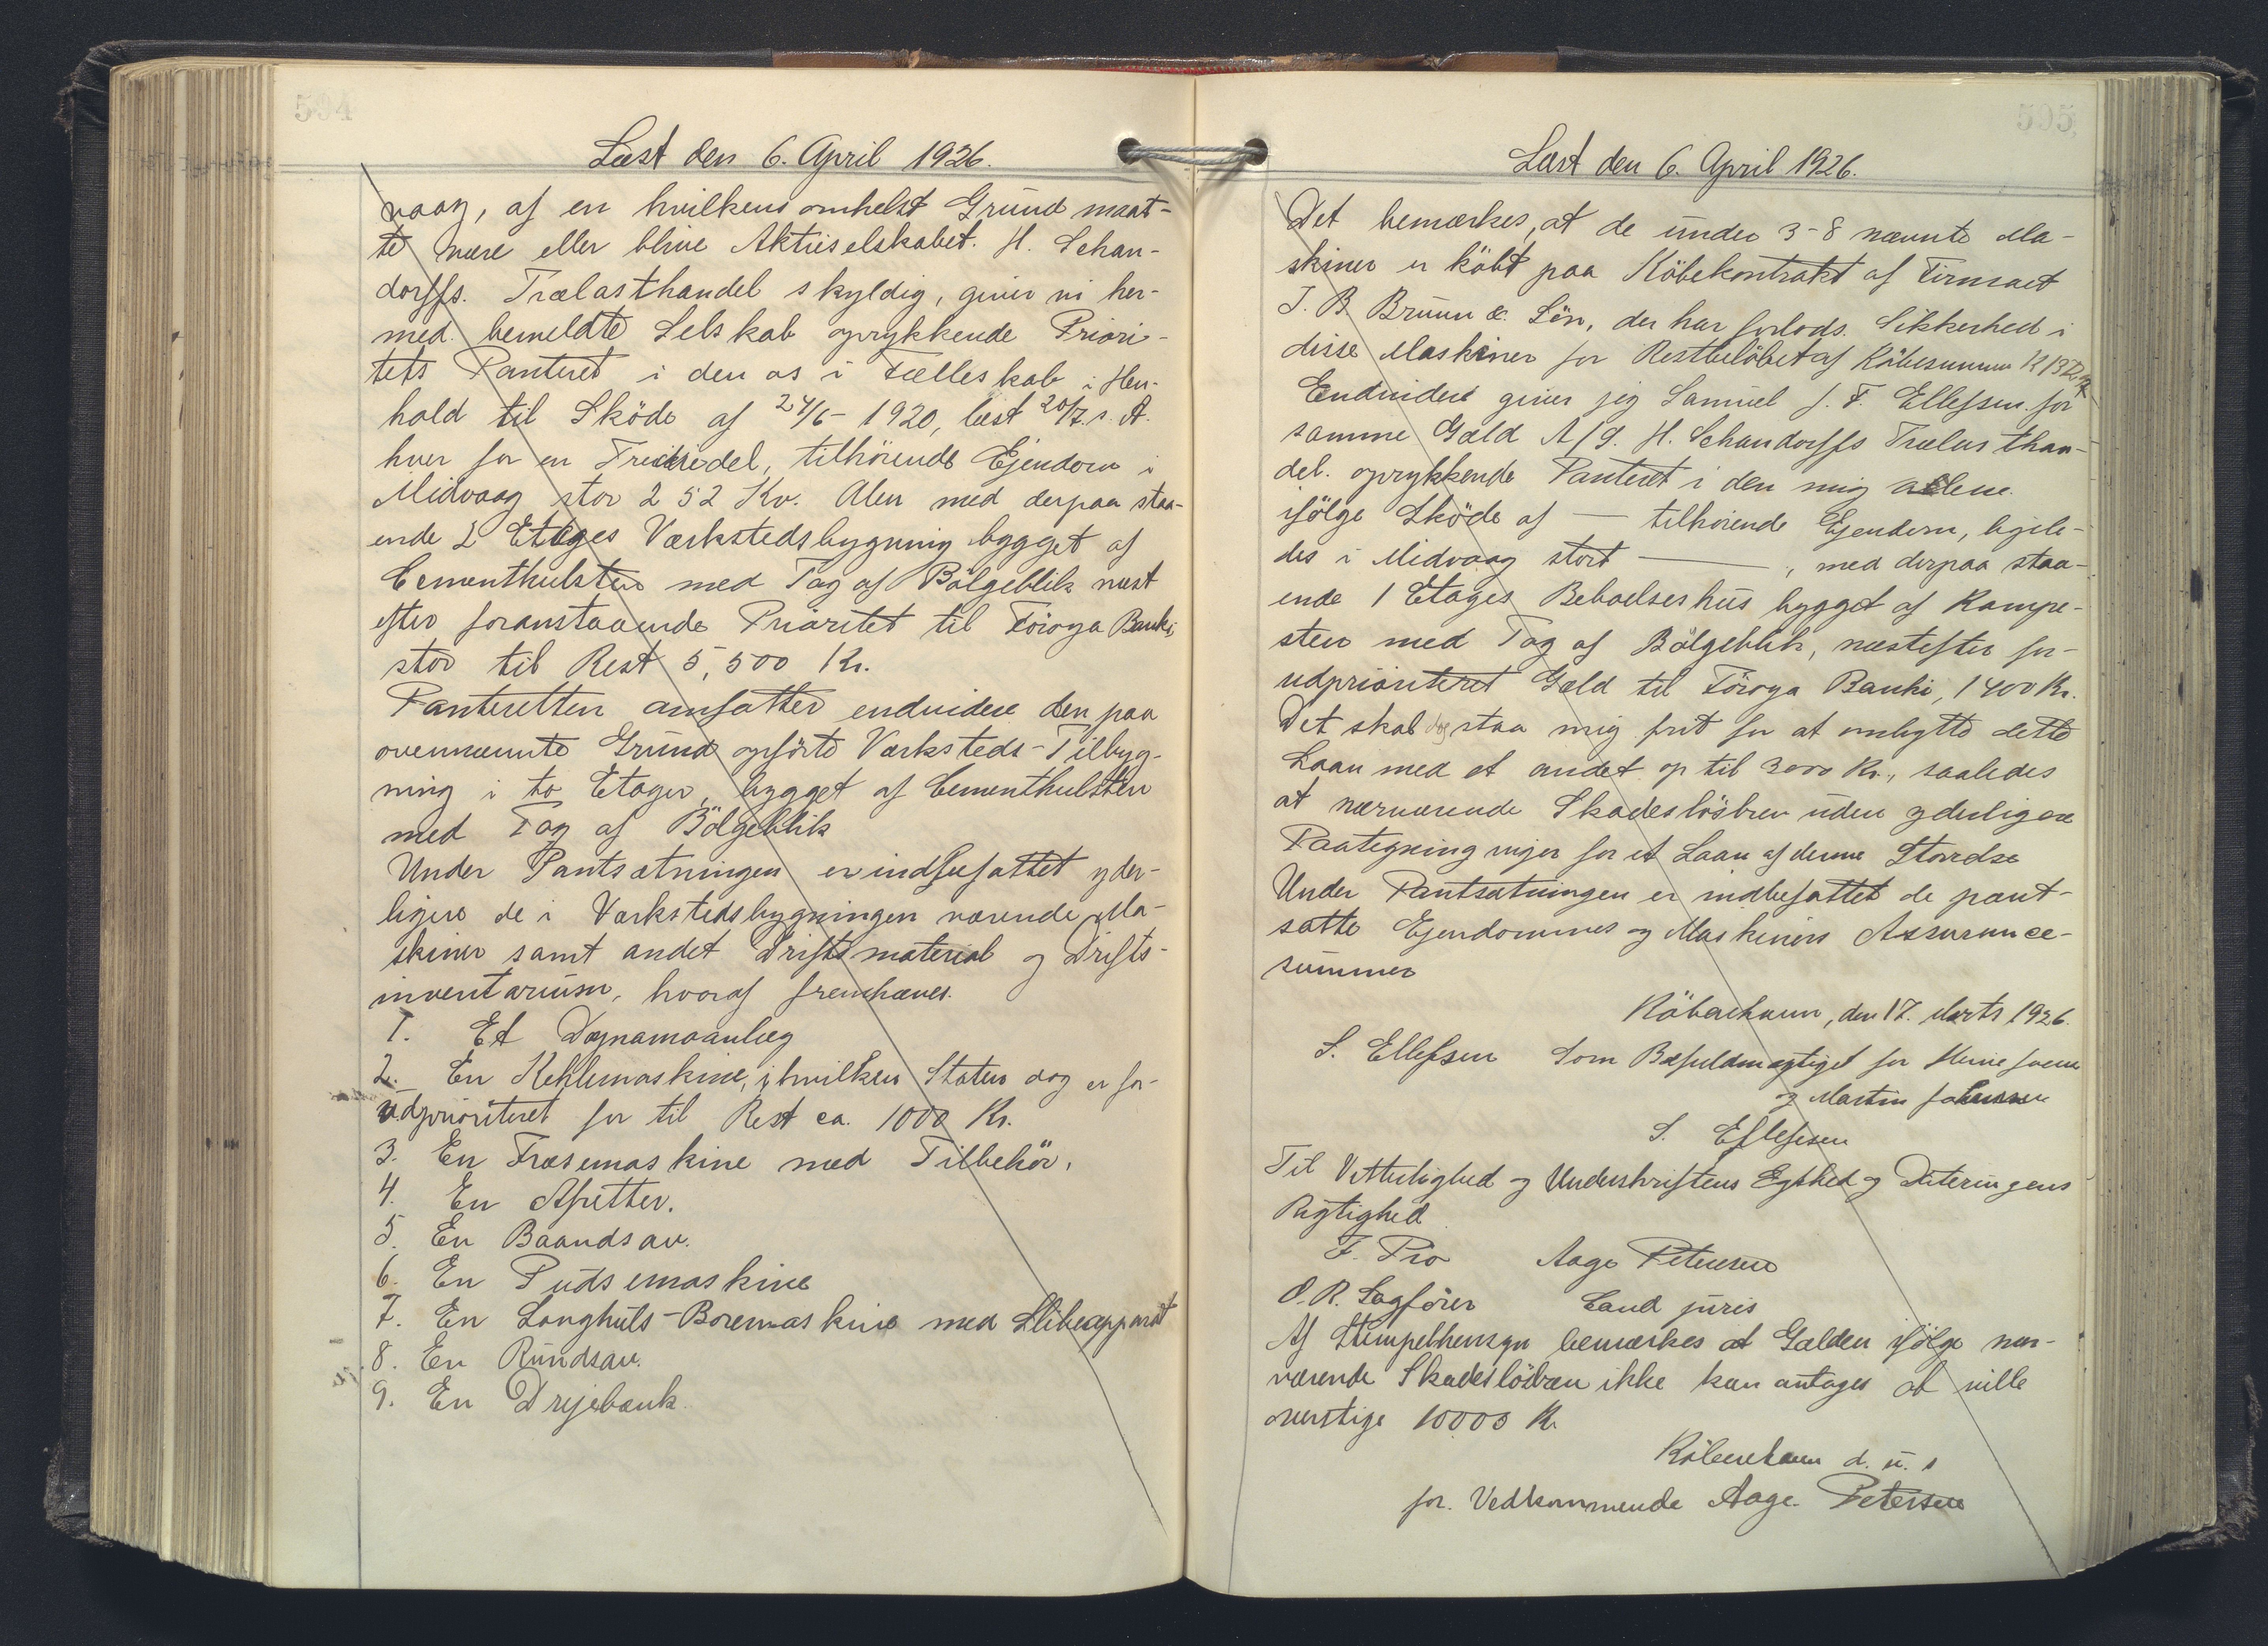 594
Læst den 6. April 1926.
vaag, af en hvilkensomhelst Grund maat-
te være eller blive Aktieselskabet. H. Schan-
dorffs. Trælasthandel skyldig, giver vi her-
med bemeldte Selskab oprykkende Priori-
tets Panteret i den os i Fælleskab i Hen-
hold til Sköde af 24/6 - 1920, læst 20/7. s. A.
hver for en Trediedel, tilhörende Ejendom i
Midvaag stor 252 Kv. Alen med derpaa staa-
ende 2 Etages Værkstedsbygning bygget af
Cementhulsten med Tag af Bölgeblik næst
efter foranstaaende Prioritet til Föroya Banki,
stor til Rest 5,500 Kr.
Panteretten omfatter endvidere den paa
ovennævnte Grund opförte Værksteds-Tilbyg-
ning i to Etager, bygget af Cementhulsten
med Tag af Bölgeblik
Under Pantsætningen er indbefattet yder-
ligere de i Værkstedsbygningen værende Ma-
skiner samt andet Driftsmaterial og Drifts-
inventarium, hvoraf fremhæves.
1. Et Dynamoanlæg
2. En Kehlemaskine, i hvilken Staten dog er for-
udprioriteret for til Rest ca. 1000 Kr.
3. En Fræsemaskine med Tilbehör.
4. En Afretter.
5. En Baandsav.
6. En Pudsemaskine
7. En Langhuls-Boremaskine med Slibeapparat
8. En Rundsav.
9. En Drejebænk.
595
Læst den 6. April 1926.
Det bemærkes, at de under 3-8 nævnte Ma-
skiner er köbt paa Köbekontrakt af Firmaet
J. B. Bruun & Sön, der har forlods. Sikkerhed i
disse Maskiner for Restbelöbet af Köbesummen
Endvidere giver jeg Samuel J. F. Ellefsen for
samme Gæld A/S. H. Schandorffs Trælasthan-
del. oprykkende Panteret i den mig alene
ifölge Sköde af — tilhörende Ejendom, ligele-
des i Midvaag stort — , med derpaa staa-
ende 1 Etages Beboelseshus bygget af Kampe-
sten med Tag af Bölgeblik, næstefter for-
udprioriteret Gæld til Föroya Banki, 1400 Kr.
Det skal dog staa mig frit for at ombytte dette
Laan med et andet op til 3000 Kr., saaledes
at nærværende Skadeslösbrev uden yderligere
Paategning viger for et Laan af denne Störrelse
Under Pantsætningen er indbefattet de pant-
satte Ejendommes og Maskiners Assurance-
summer
Köbenhavn, den 17. Marts 1926.
S. Ellefsen Som Befuldmægtiget for
og Martin Johannesen
S. Ellefsen
Til Vitterlighed og Underskriftens Ægthed og Dateringens
Rigtighed
F. Pio Aage Petersen
O. R. Sagförer Cand juris
Af Stempelhensyn bemærkes at Gælden ifölge nær-
værende Skadeslösbrev ikke kan antages at ville
overstige 10000 Kr
Köbenhavn d. u. s
for. Vedkommende Aage. Petersen